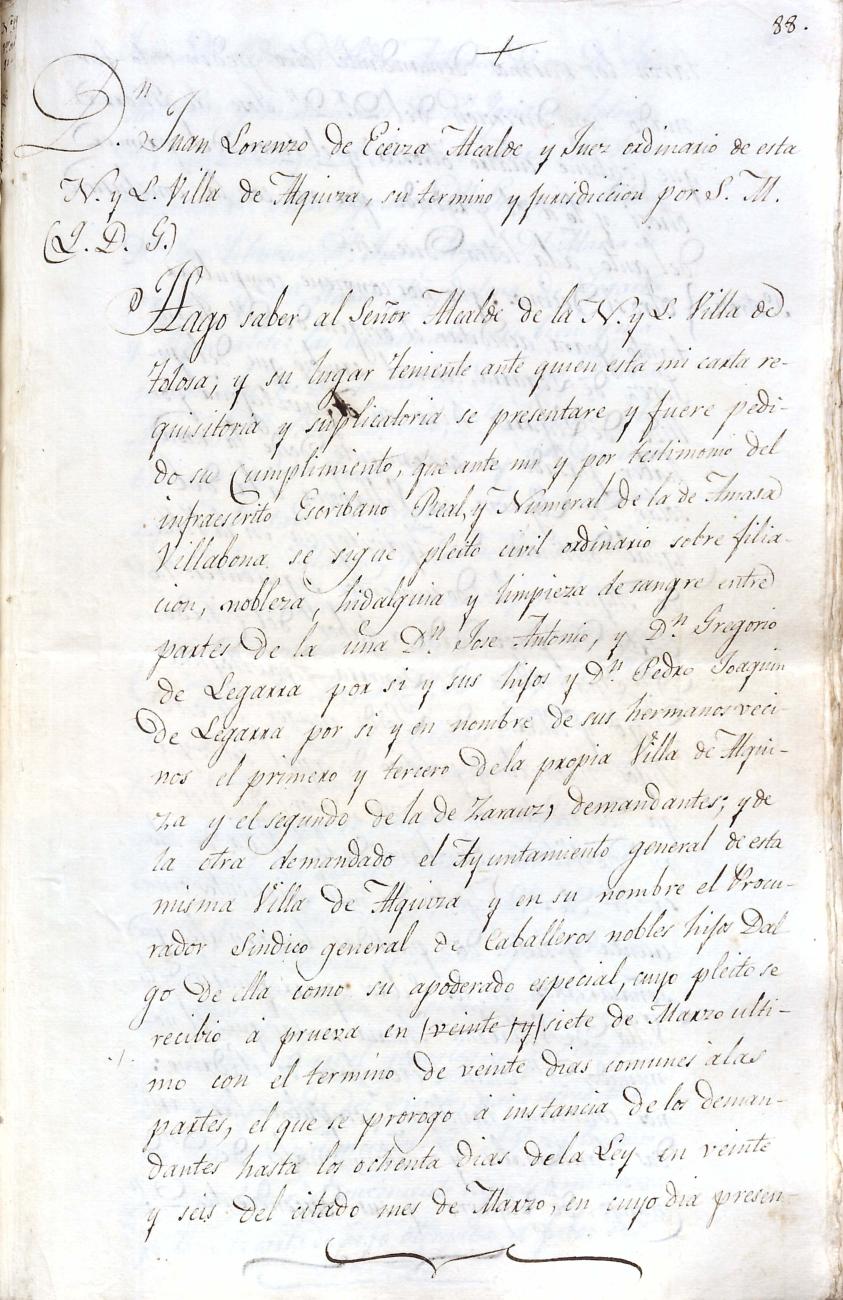 88.
Dn. Juan Lorenzo de Eceiza Alcalde y Juez ordinario de esta
N. y L. Villa de Alquiza, su termino y jurisdiccion por S. M.
(Q. D. G.)
Hago saber al Señor Alcalde de la N. y L. Villa de
Tolosa, y su lugar teniente ante quien esta mi carta re-
quisitoria y suplicatoria se presentare y fuere pedi-
do su cumplimiento, que ante mi y por testimonio del
infraescrito Escribano Real, y Numeral de la de Amasa
Villabona se sigue pleito civil ordinario sobre filia-
cion, nobleza, hidalguia y limpieza de sangre entre
partes de la una Dn. Jose Antonio, y Dn. Gregorio
de Legarra por si y sus hijos y Dn. Pedro Joaquin
de Legarra por si y en nombre de sus hermanos veci-
nos el primero y tercero de la propia Villa de Alqui-
za y el segundo de la de Zarauz, demandantes; y de
la otra demandado el Ayuntamiento general de esta
misma Villa de Alquiza y en su nombre el Procu-
rador Sindico general de Caballeros nobles hijos Dal
go de ella como su apoderado especial, cuyo pleito se
recibio á prueva en (veinte y) siete de Marzo ulti-
mo con el termino de veinte dias comunes á las
partes, el que se prorogo á instancia de los deman-
dantes hasta los ochenta dias de la Ley en veinte
y seis del citado mes de Marzo, en cuyo dia presen-